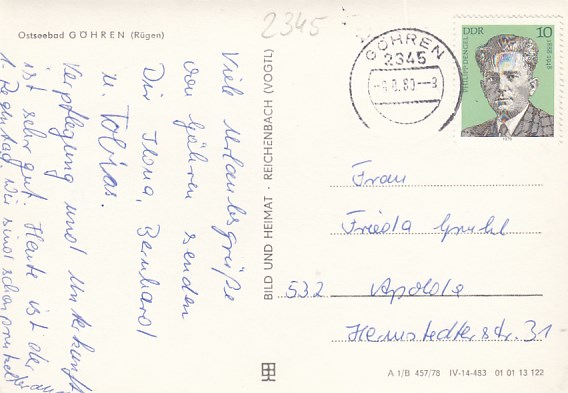 Ostseebad GÖHREN (Rügen)
2345
GÖHREN
2345
80
DDR 10
PHILIPP DENGEL
1888-1948
BILD UND HEIMAT · REICHENBACH (VOGTL)
Viele Urlaubsgrüße
von Göhren senden
Dir Ilona, Bernhard
u. Tobias.
Verpflegung und Unterkunft
ist sehr gut. Heute ist der
1. Regentag. Wir sind schon
Frau
Frieda
532 Apolda
Hermstedterstr. 31
A 1/B 457/78 IV-14-483 01 01 13 122